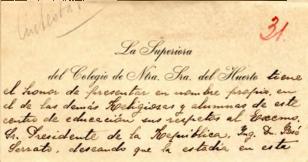 31.
La Superiora
del Colegio de Ntra. Sra. del Huerto tiene
el honor de presentar en nombre propio, en
el de las demás Religiosas y alumnas de este
centro de educación sus respetos al Excmo.
Sr. Presidente de la República, Ing. D. José
Serrato, deseando que la estadía en esta